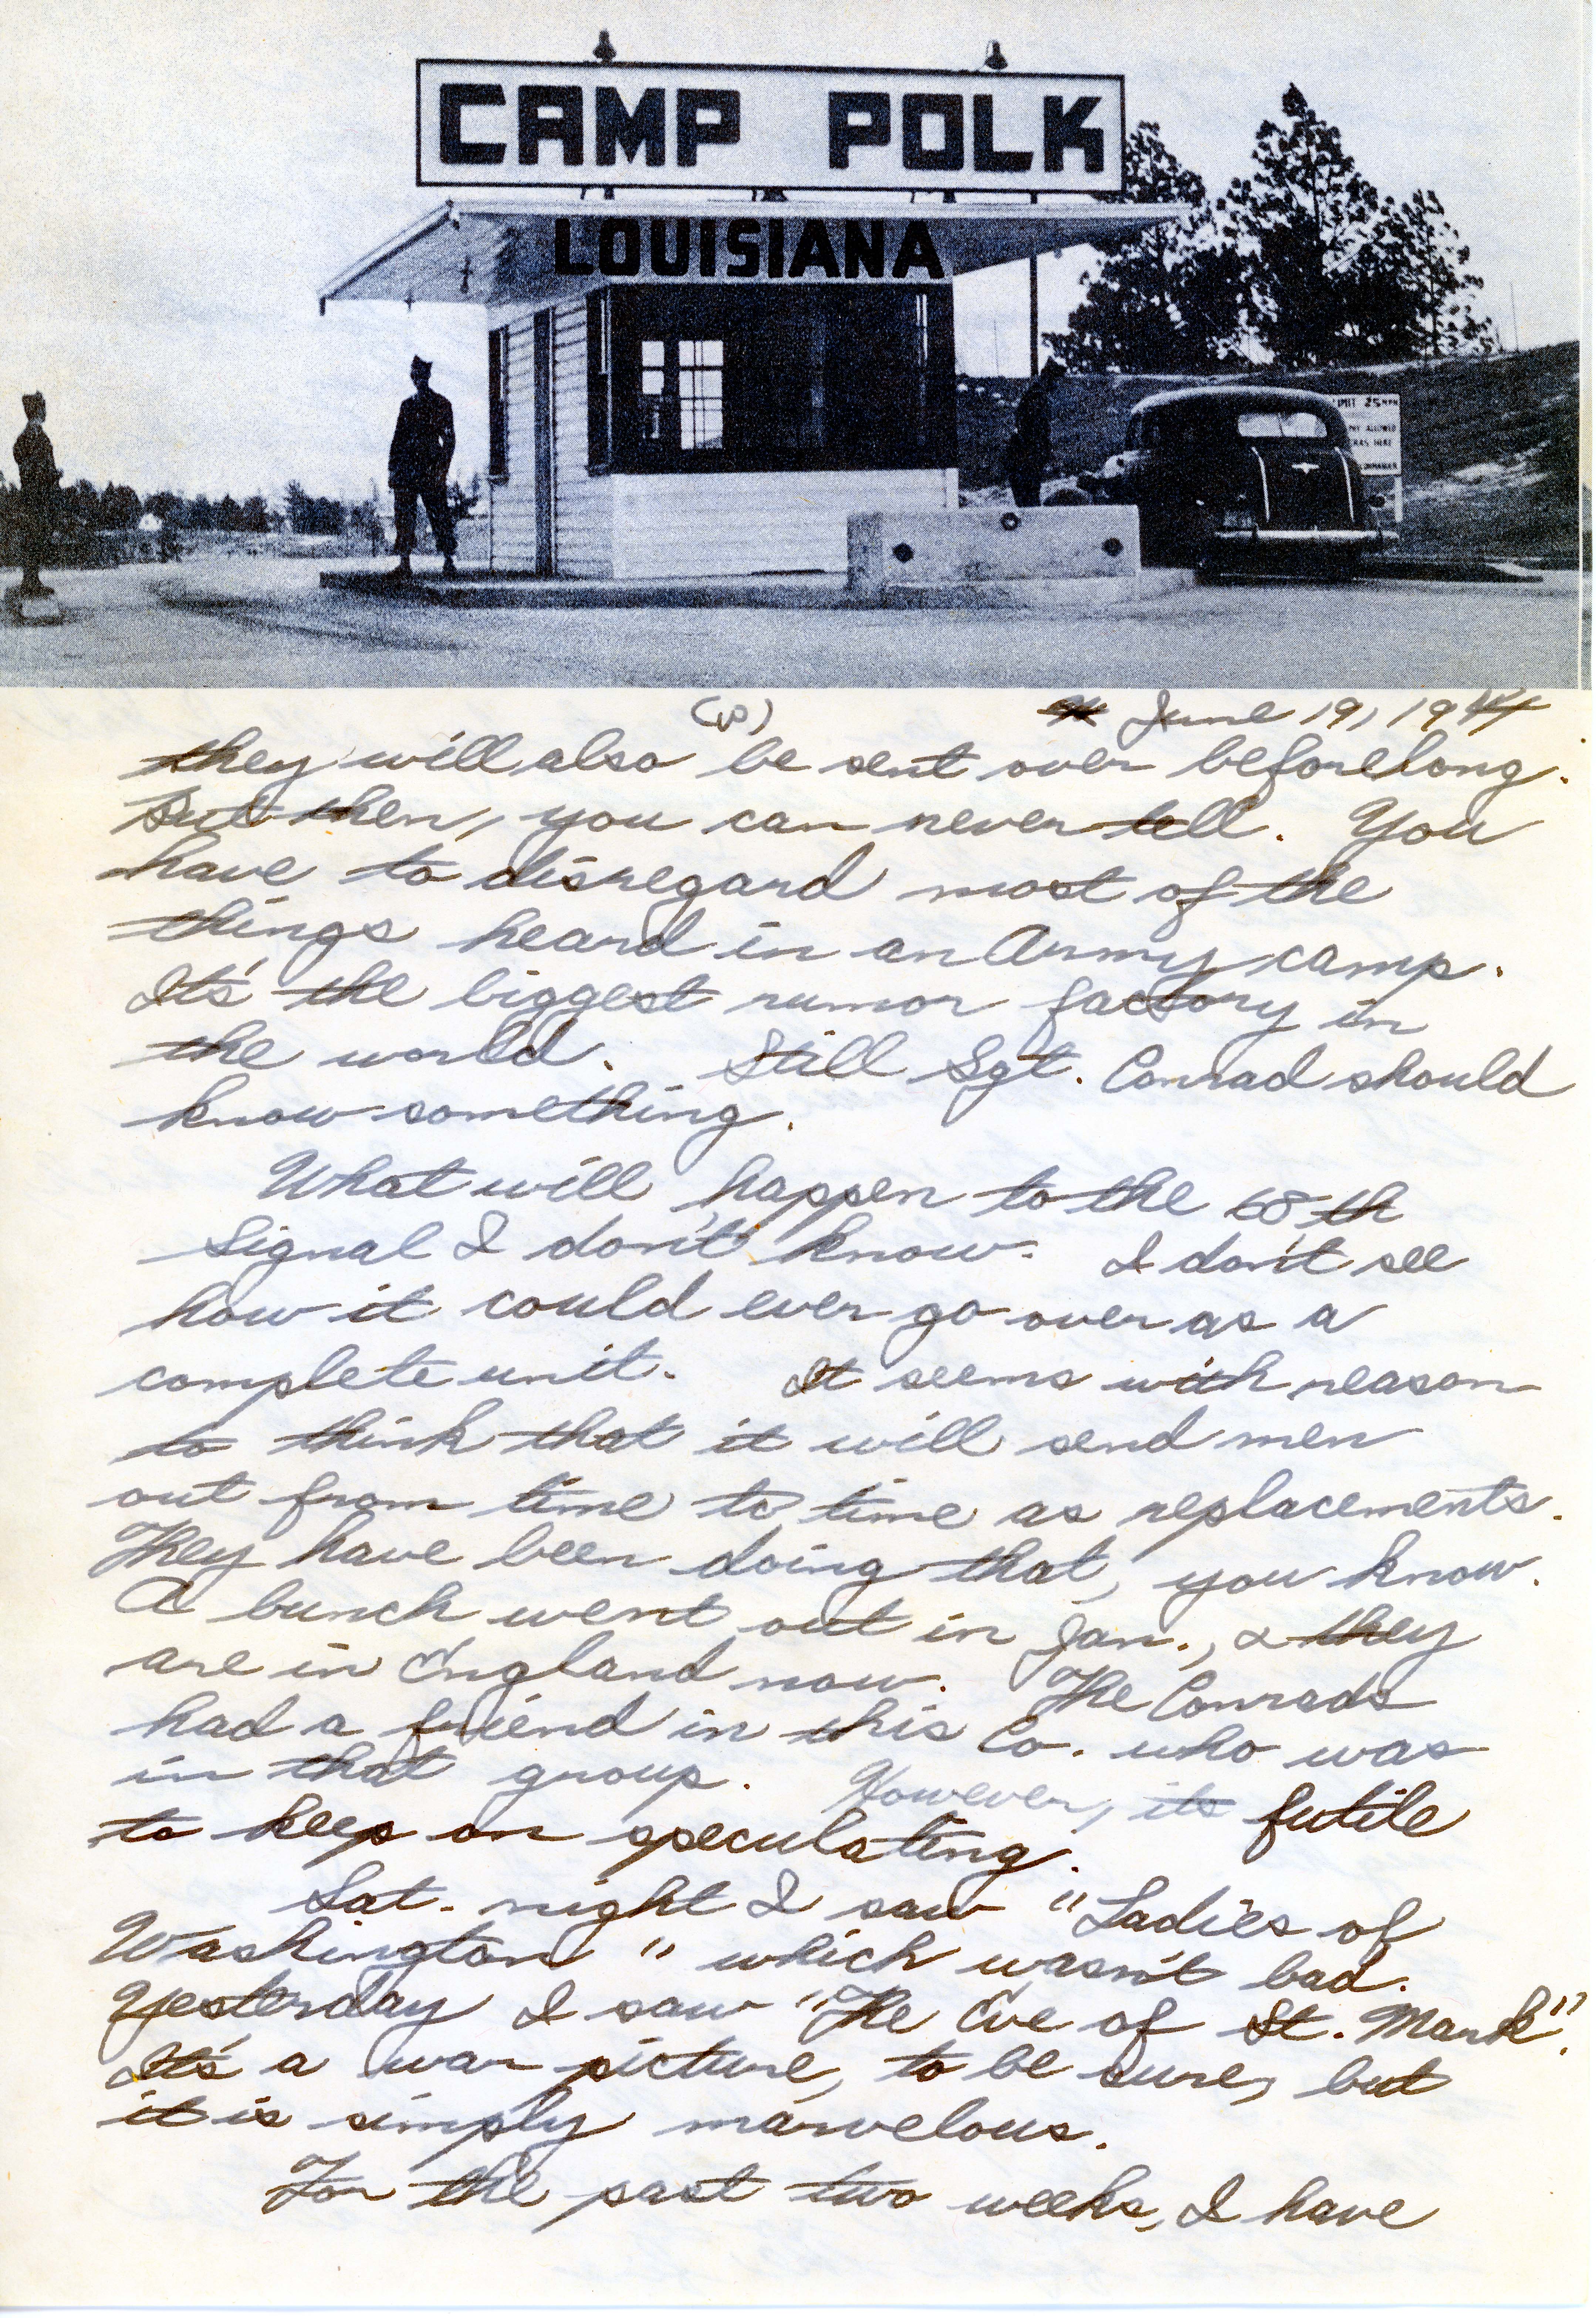 CAMP POLK
LOUISIANA
LIMIT 25 MPH
ALLOWED
HERE
(3) June 19, 1944
they will also be sent over beforelong.
But then, you can never tell. You
have to disregard most of the
things heard in an Army camp.
It's the biggest rumor factory in
the world. Still Sgt. Conrad should
know something.
What will happen to the 68th
Signal I don't know. I don't see
how it could ever go over as a
complete unit. It seems with reason
to think that it will send men
out from time to time as replacements.
They have been doing that, you know.
A bunch went out in Jan., & they
are in England now. The Conrads
had a friend in this Co. who was
in that group. However, its futile
to keep on speculating.
Sat. night I saw "Ladies of
Washington" which wasn't bad.
Yesterday I saw "The Eve of St. Mark".
It's a war picture, to be sure, but
it is simply marvelous.
For the past two weeks, I have